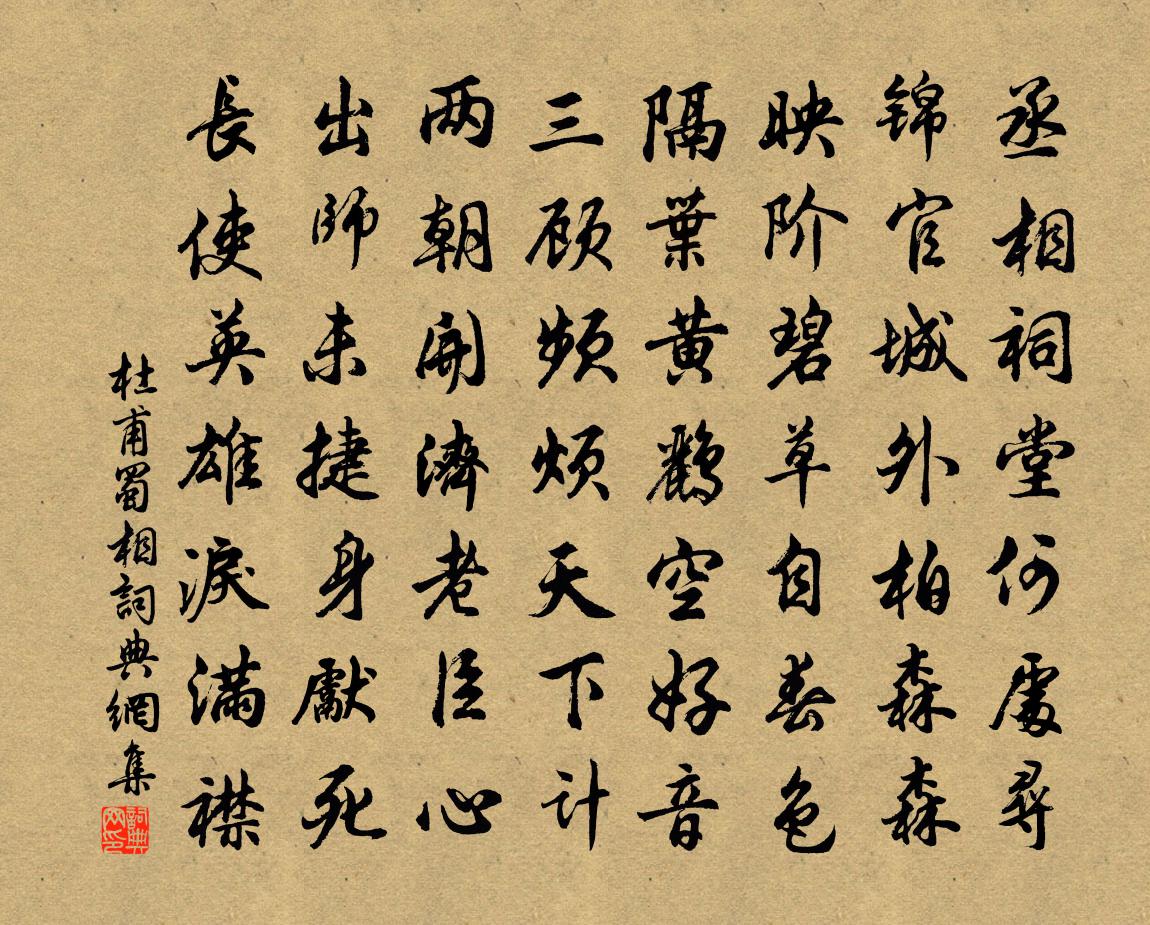 丞相祠堂何處尋
锦官城外柏森森
映阶碧草自春色
隔葉黄鹂空好音
三顾频烦天下计
两朝開濟老臣心
出師未捷身獻死
長使英雄淚满襟
杜甫蜀相詞典網集
詞典网印